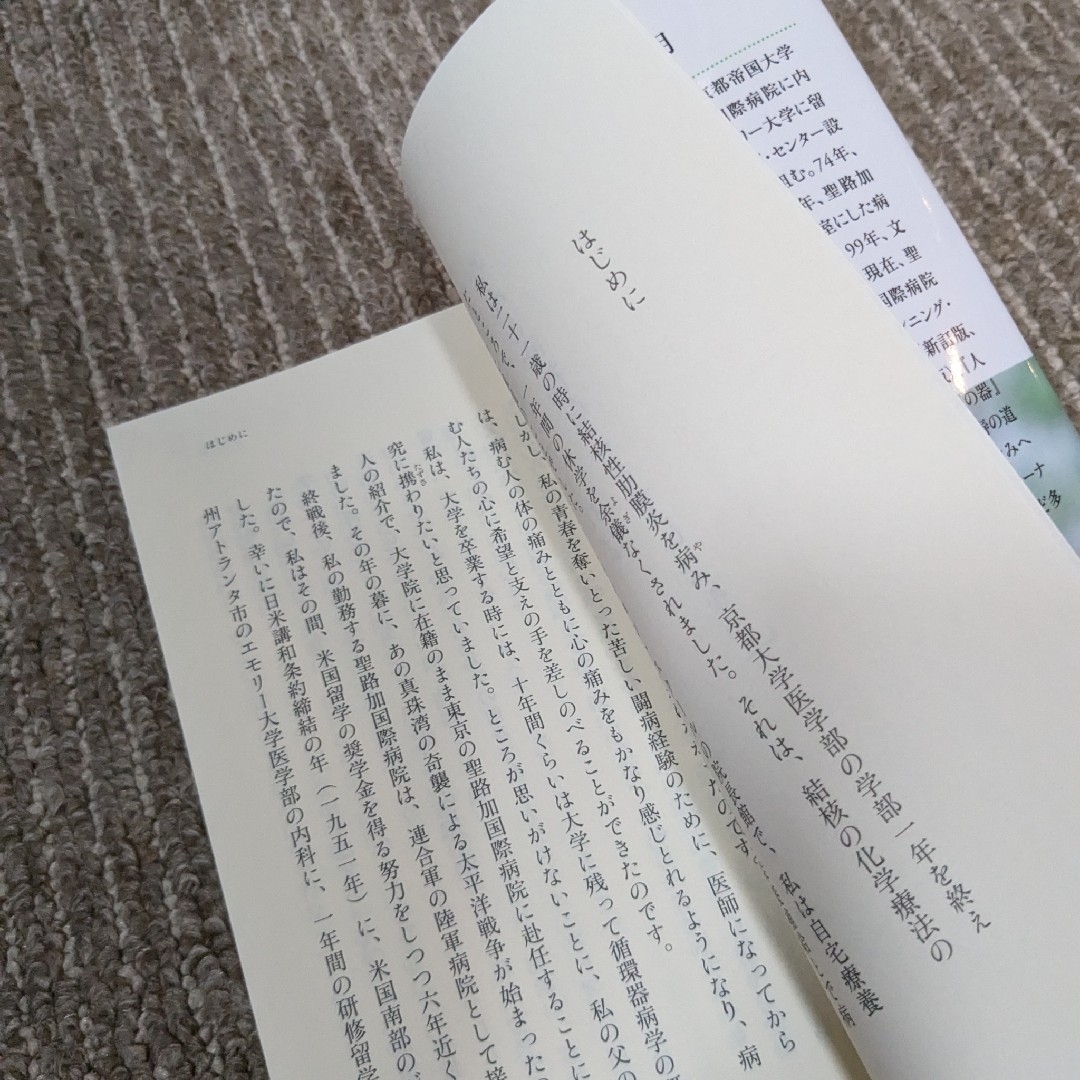 はじめに
私は二十一歳の時に結核性肋膜炎を病み、京都大学医学部の学部一年を終え
一年間の休学を余儀なくされました。それは、結核の化学療法の
私は自宅療養
しかし、私の青春を奪いとった苦しい闘病経験のために、医師になってから
は、病む人の体の痛みとともに心の痛みをもかなり感じとれるようになり、病
む人たちの心に希望と支えの手を差しのべることができたのです。
私は、大学を卒業する時には、十年間くらいは大学に残って循環器病学の
究に携わりたいと思っていました。ところが思いがけないことに、私の父の
人の紹介で、大学院に在籍のまま東京の聖路加国際病院に赴任することに
ました。その年の暮に、あの真珠湾の奇襲による太平洋戦争が始まった
終戦後、私の勤務する聖路加国際病院は、連合軍の陸軍病院として接
たので、私はその間、米国留学の奨学金を得る努力をしつつ六年近く
した。幸いに日米講和条約締結の年（一九五一年）に、米国南部の
州アトランタ市のエモリー大学医学部の内科に、一年間の研修留学
はじめに
都帝国大学
国際病院に内
リー大学に留
・センター設
組む。74年、
年、聖路加
室にした病
99年、文
現在、聖
国際病院
ニング・
新訂版、
『人
の器』
の道
みへ
ーナ
ど多